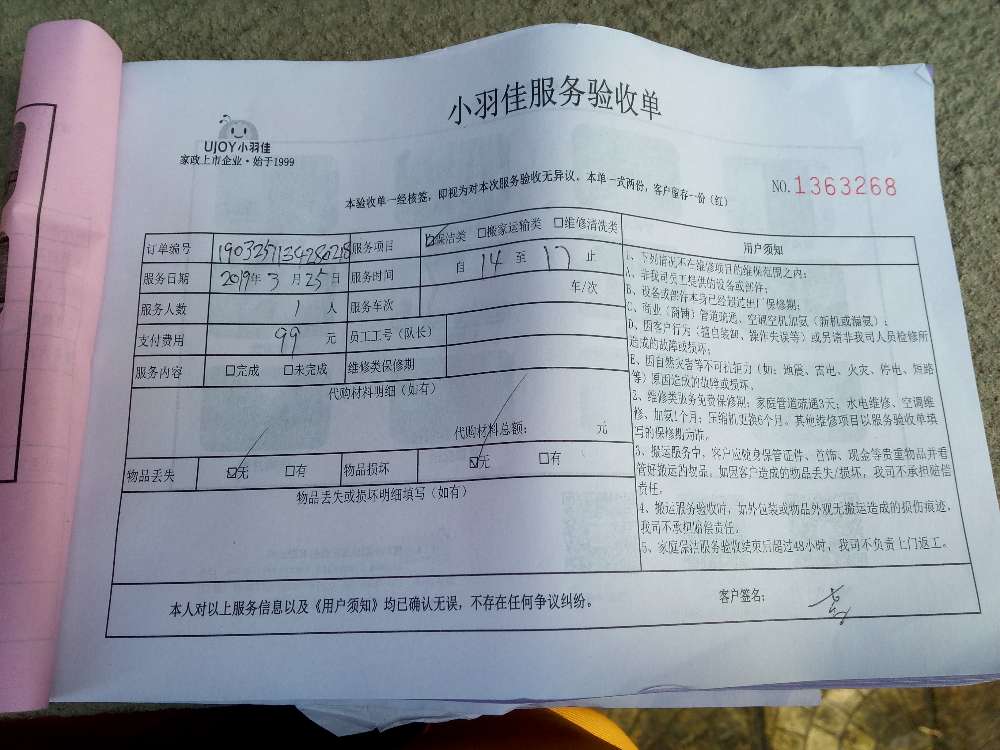 小羽佳服务验收单
UJOY小羽佳
家政上市企业·始于1999
本验收单一经核签，即视为对本次服务验收无异议，本单一式两份，客户留存一份（红）
NO.1363268
订单编号
服务项目 ☑保洁类 □搬家运输类 □维修清洗类
服务日期 2019年3月25日 服务时间 自14至17止
服务人数 1人 服务车次 车/次
支付费用 99元 员工工号（队长）
服务内容 □完成 □未完成 维修类保修期
代购材料明细（如有）
代购材料总额： 元
物品丢失 ☑无 □有 物品损坏 ☑无 □有
物品丢失或损坏明细填写（如有）
用户须知
1、下列情况不在维修项目的维保范围之内：
A、非我司员工提供的设备或部件；
B、设备或部件本身已经超过出厂保修期；
C、商业（商铺）管道疏通、空调空机加氨（新机或漏氨）；
D、因客户行为（擅自装卸、操作失误等）或另请非我司人员检修所
造成的故障或损坏；
E、因自然灾害等不可抗拒力（如：地震、雷电、火灾、停电、短路
等）原因造成的故障或损坏。
2、维修类服务免费保修期：家庭管道疏通3天；水电维修、空调维
修、加氨1个月；压缩机更换6个月。其他维修项目以服务验收单填
写的保修期为准。
3、搬运服务中，客户应随身保管证件、首饰、现金等贵重物品并看
管好搬运的物品，如因客户造成的物品丢失/损坏，我司不承担赔偿
责任。
4、搬运服务验收时，如外包装或物品外观无搬运造成的损伤痕迹，
我司不承担赔偿责任。
5、家庭保洁服务验收结束后超过48小时，我司不负责上门返工。
本人对以上服务信息以及《用户须知》均已确认无误，不存在任何争议纠纷。
客户签名：